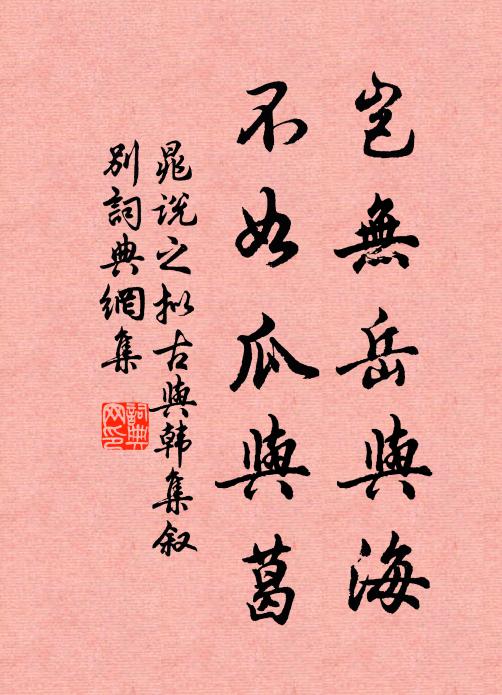 豈無岳與海
不如瓜與葛
晁说之拟古與韩集叙
别詞典網集
詞典网印